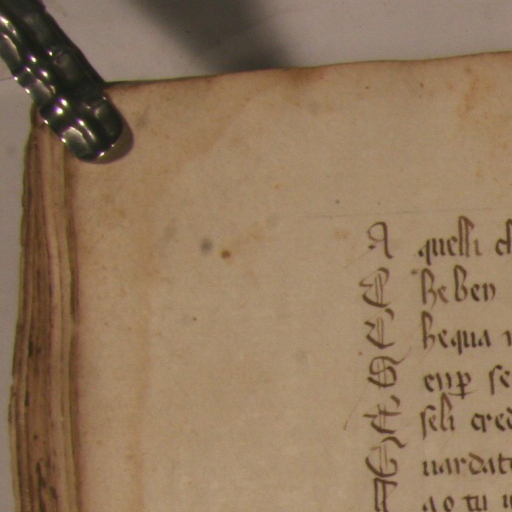 A quelli ch
C heben
C hequa
S enp se
E seli cred
G uardat